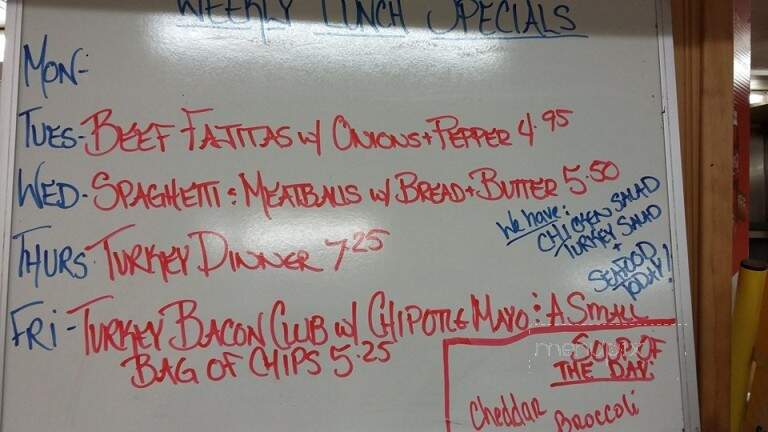 WEEKLY LUNCH SPECIALS
MON-
TUES- BEEF FAJITAS w/ ONIONS + PEPPER 4.95
WED- SPAGHETTI & MEATBALLS w/ BREAD + BUTTER 5.50
THURS- TURKEY DINNER 7.25
We have:
CHICKEN SALAD
TURKEY SALAD
+
SEAFOOD
TODAY!
FRI- TURKEY BACON CLUB w/ CHIPOTLE MAYO & A SMALL
BAG OF CHIPS 5.25
SOUP OF
THE DAY:
Cheddar Broccoli
menupix